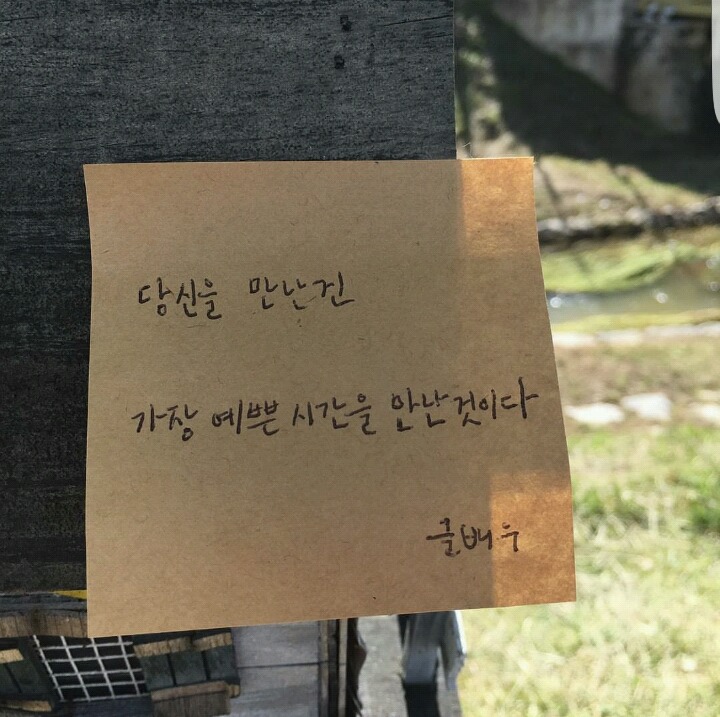 당신을 만난건
가장 예쁜 시간을 만난것이다
글배우